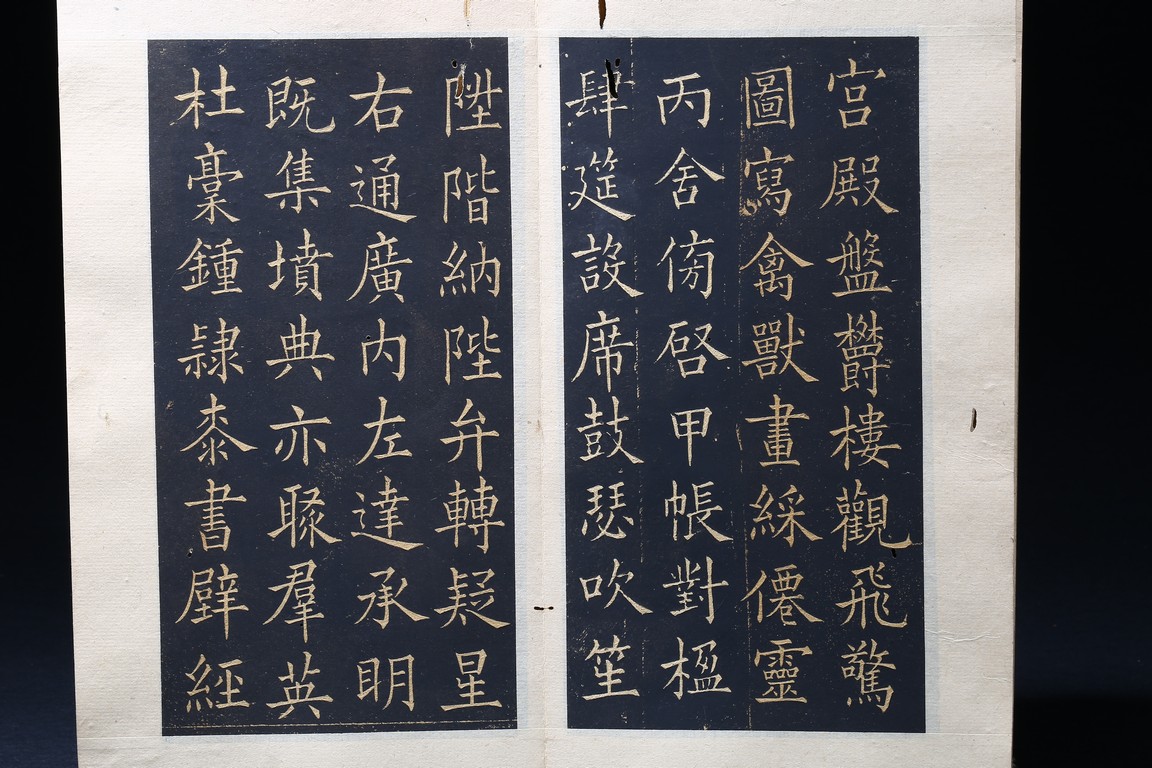 宮殿盤欝樓觀飛驚
圖寫禽獸畫綵僊靈
丙舍傍啓甲帳對楹
肆筵設席鼓瑟吹笙
陞階納陛弁轉疑星
右通廣内左達承明
既集墳典亦聚羣英
杜稾鍾隷桼書壁經